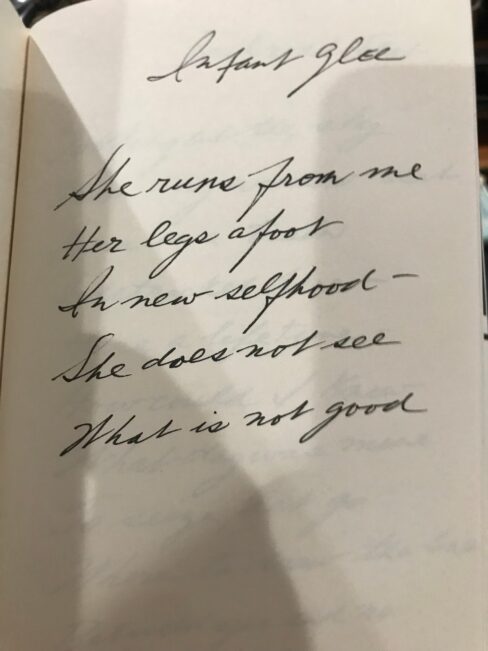 Infant glee
She runs from me
Her legs afoot
In new selfhood -
She does not see
What is not good